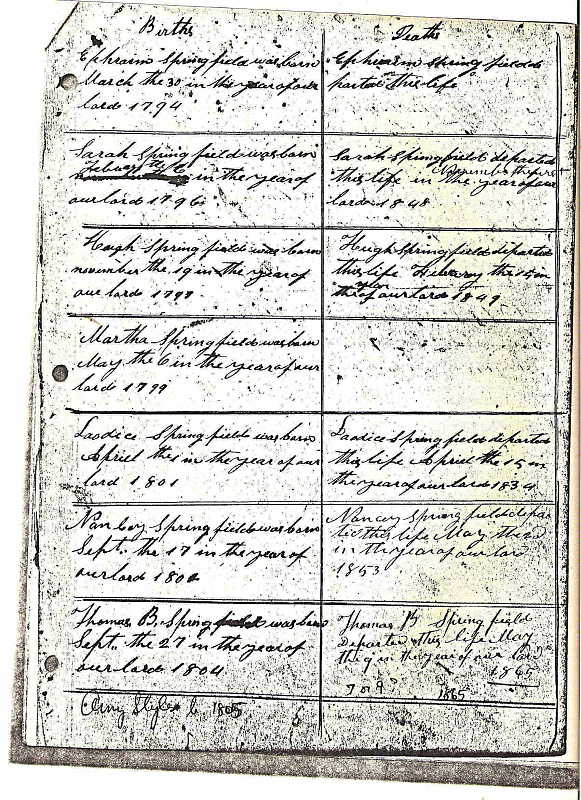 Births
Ephraim Springfield was born
March the 30 in the year of our
lord 1794
Sarah Springfield was born
in the year of
our lord 1796
Hugh Springfield was born
november the 19 in the year of
our lord 1797
Martha Springfield was born
May the 6 in the year of our
lord 1799
Laodice Springfield was born
Apriel the 1 in the year of our
lord 1801
Nancy Springfield was born
Sept. the 17 in the year of
our lord 1802
Thomas B. Springfield was born
Sept. the 27 in the year of
our lord 1804
Amy b 1805
Deaths
Ephraim Springfield
parted this life
Sarah Springfield departed
November the first
this life in the year of our
lord 1848
Hugh Springfield departed
this life the 15 in
the of our lord 1849
Laodice Springfield departed
this life Apriel the 15 in
the year of our lord 1834
Nancy Springfield depar
ted this life May the
in the year of our lord
1853
Thomas B Springfield
Departed this life May
the 9 in the year of our lord
1865
7 or 9 1865